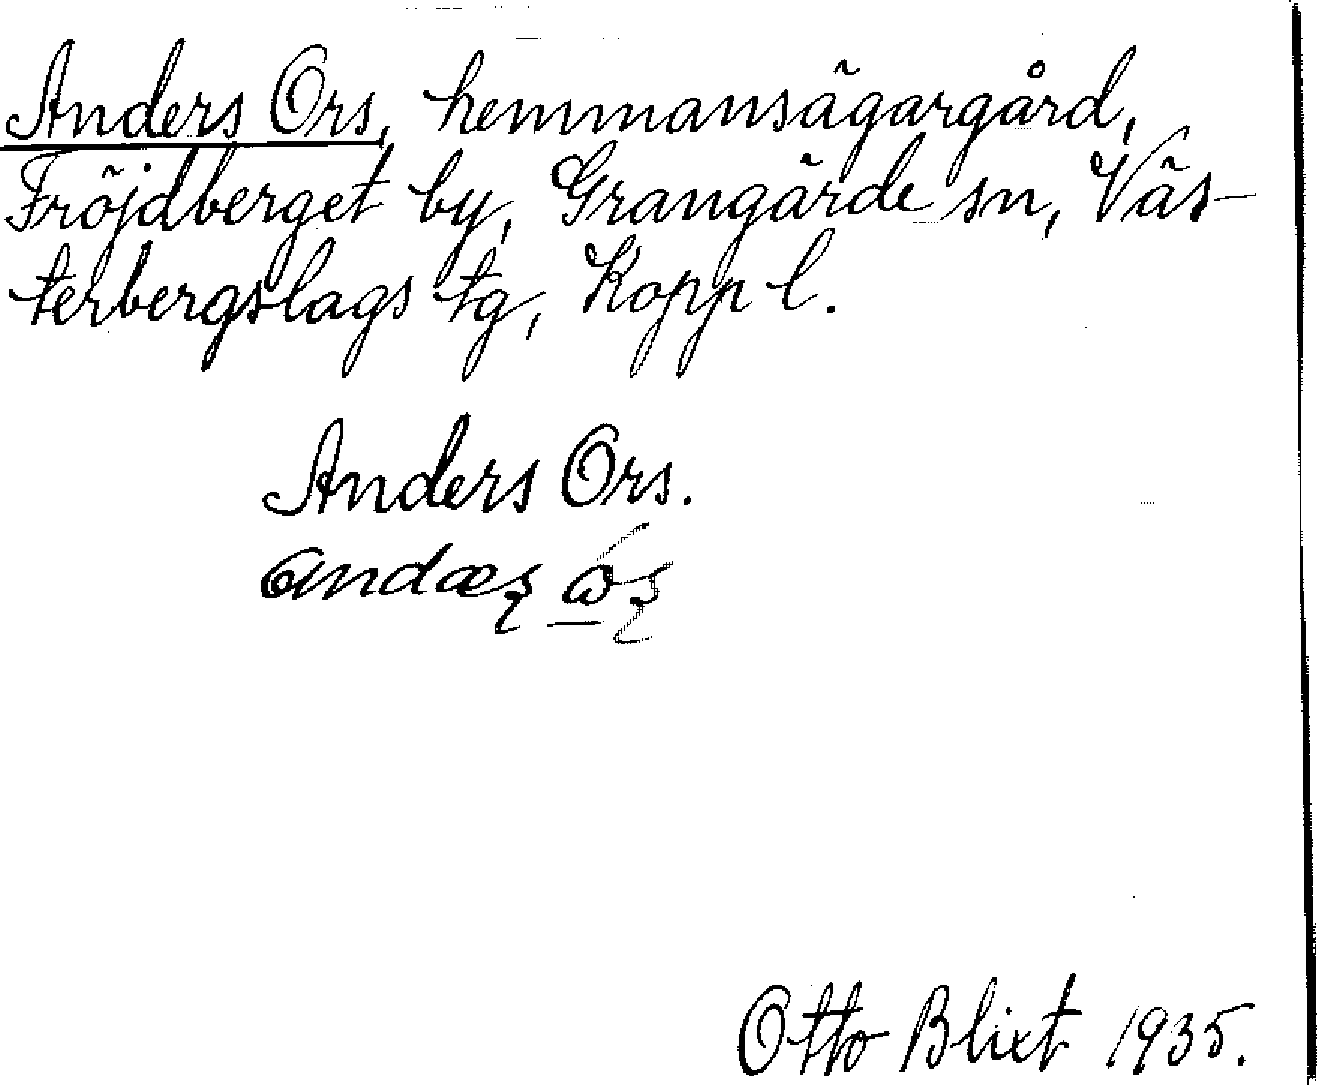 Anders Ors, hemmansägargård,
Fröjdberget by, Grangärde sn, Väs-
terbergslags tg, Kopp l.
Anders Ors.
Otto Blixt 1935.